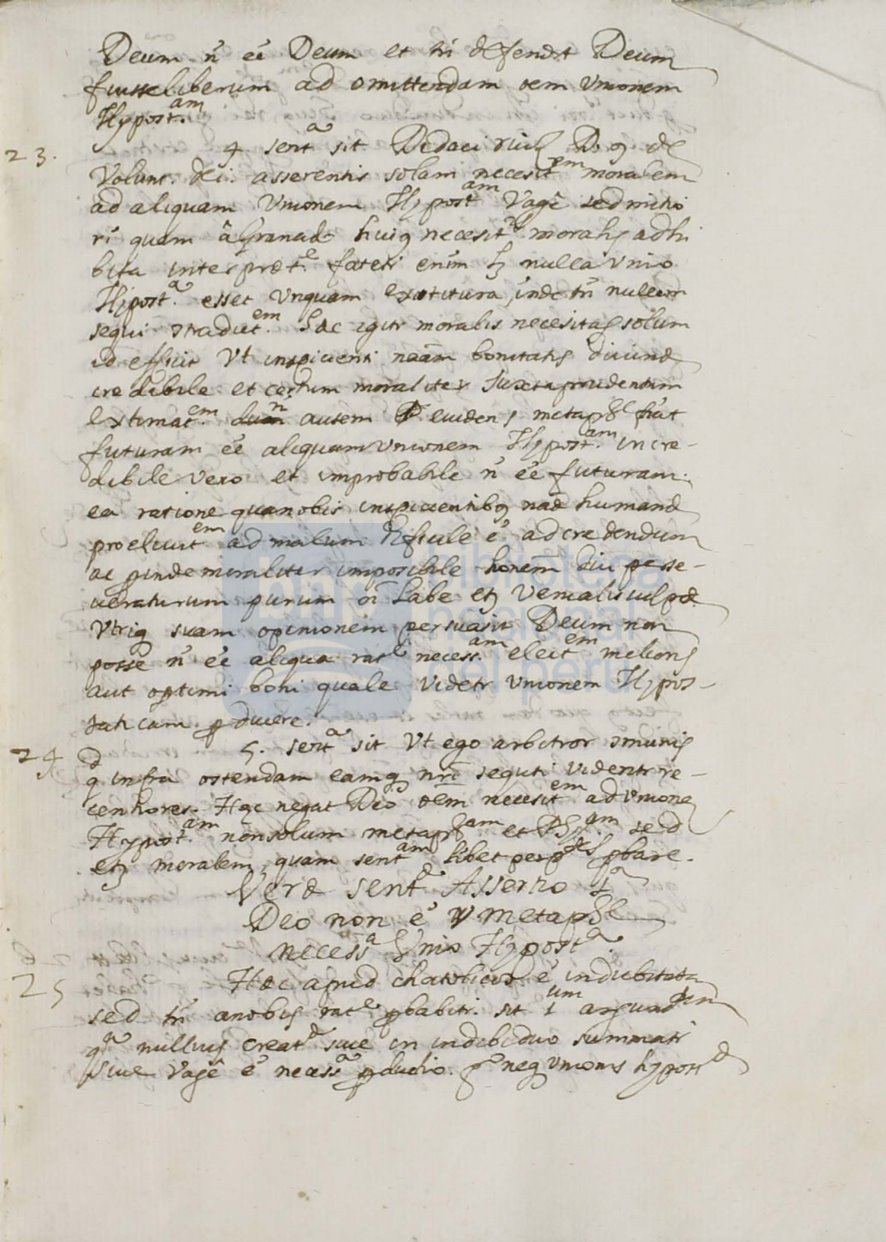 Deum ñ eē Deum et tñ defendit Deum
fuisse liberum ad omittendam oem Vnionem
Hypost.am
23. 4 sentª sit Didaci Ruiz D. 9 de
Volunt. dei. asserentis solam necesit.em moralem
ad aliquam Vnionem Hypost.am Vagē sed mitio
ri quam â Granad. huiq necesit. moralis adhi
bita interpret.e fateri enim si nulla vnio
Hypost.ª esset Vnquam extitura, inde tñ nullam
sequi tradict.em Hac igitr moralis necesitas solum
id efficit Vt inspicienti naām bonitatis divinæ
credibile et certum moraliter iuxta prudentem
extimat.em autem eviden metaph fiat
futuram eē aliquam vnionem Hypost.am incre-
dibile vero et improbabile ñ eē futuram.
ea ratione qua nobis inspicientibq naæ humanæ
proclivit.em ad malum dificile ē ad credendum
ac pinde moraliter imposibile homēm diu perse-
veraturum purum oi labe etz venialis culpæ
Vtriq suam opinionem persuasit Deum non
posse ñ eē aliqua rat.e necess.am eleict.em melioris
aut optimi boni quale Videtr Vnionem Hypos-
taticam pducere.
24 5. sentª sit Vt ego arbitror comunis
q infra ostendam eamq nri sequti videntr re-
centiores. Hæc negat Deo oēm necesit.em ad vnione
Hypost.am nōn solum metaph.am et Phy.am sed
etz moralem, quam sent.am libet per pbare.
Veræ sent.æ Assertio 1ª
Deo non ē metaph.e
necessª Vnio Hypost.ª
25 Hæc apud chatolicos ē indubitata
sed tñ a nobis rat.e pbabitr. sit 1.um argum
qª nullius creat.æ sive in individuo sumati
sive Vagē ē necessª pductio. g neq Vnionis hypost.æ